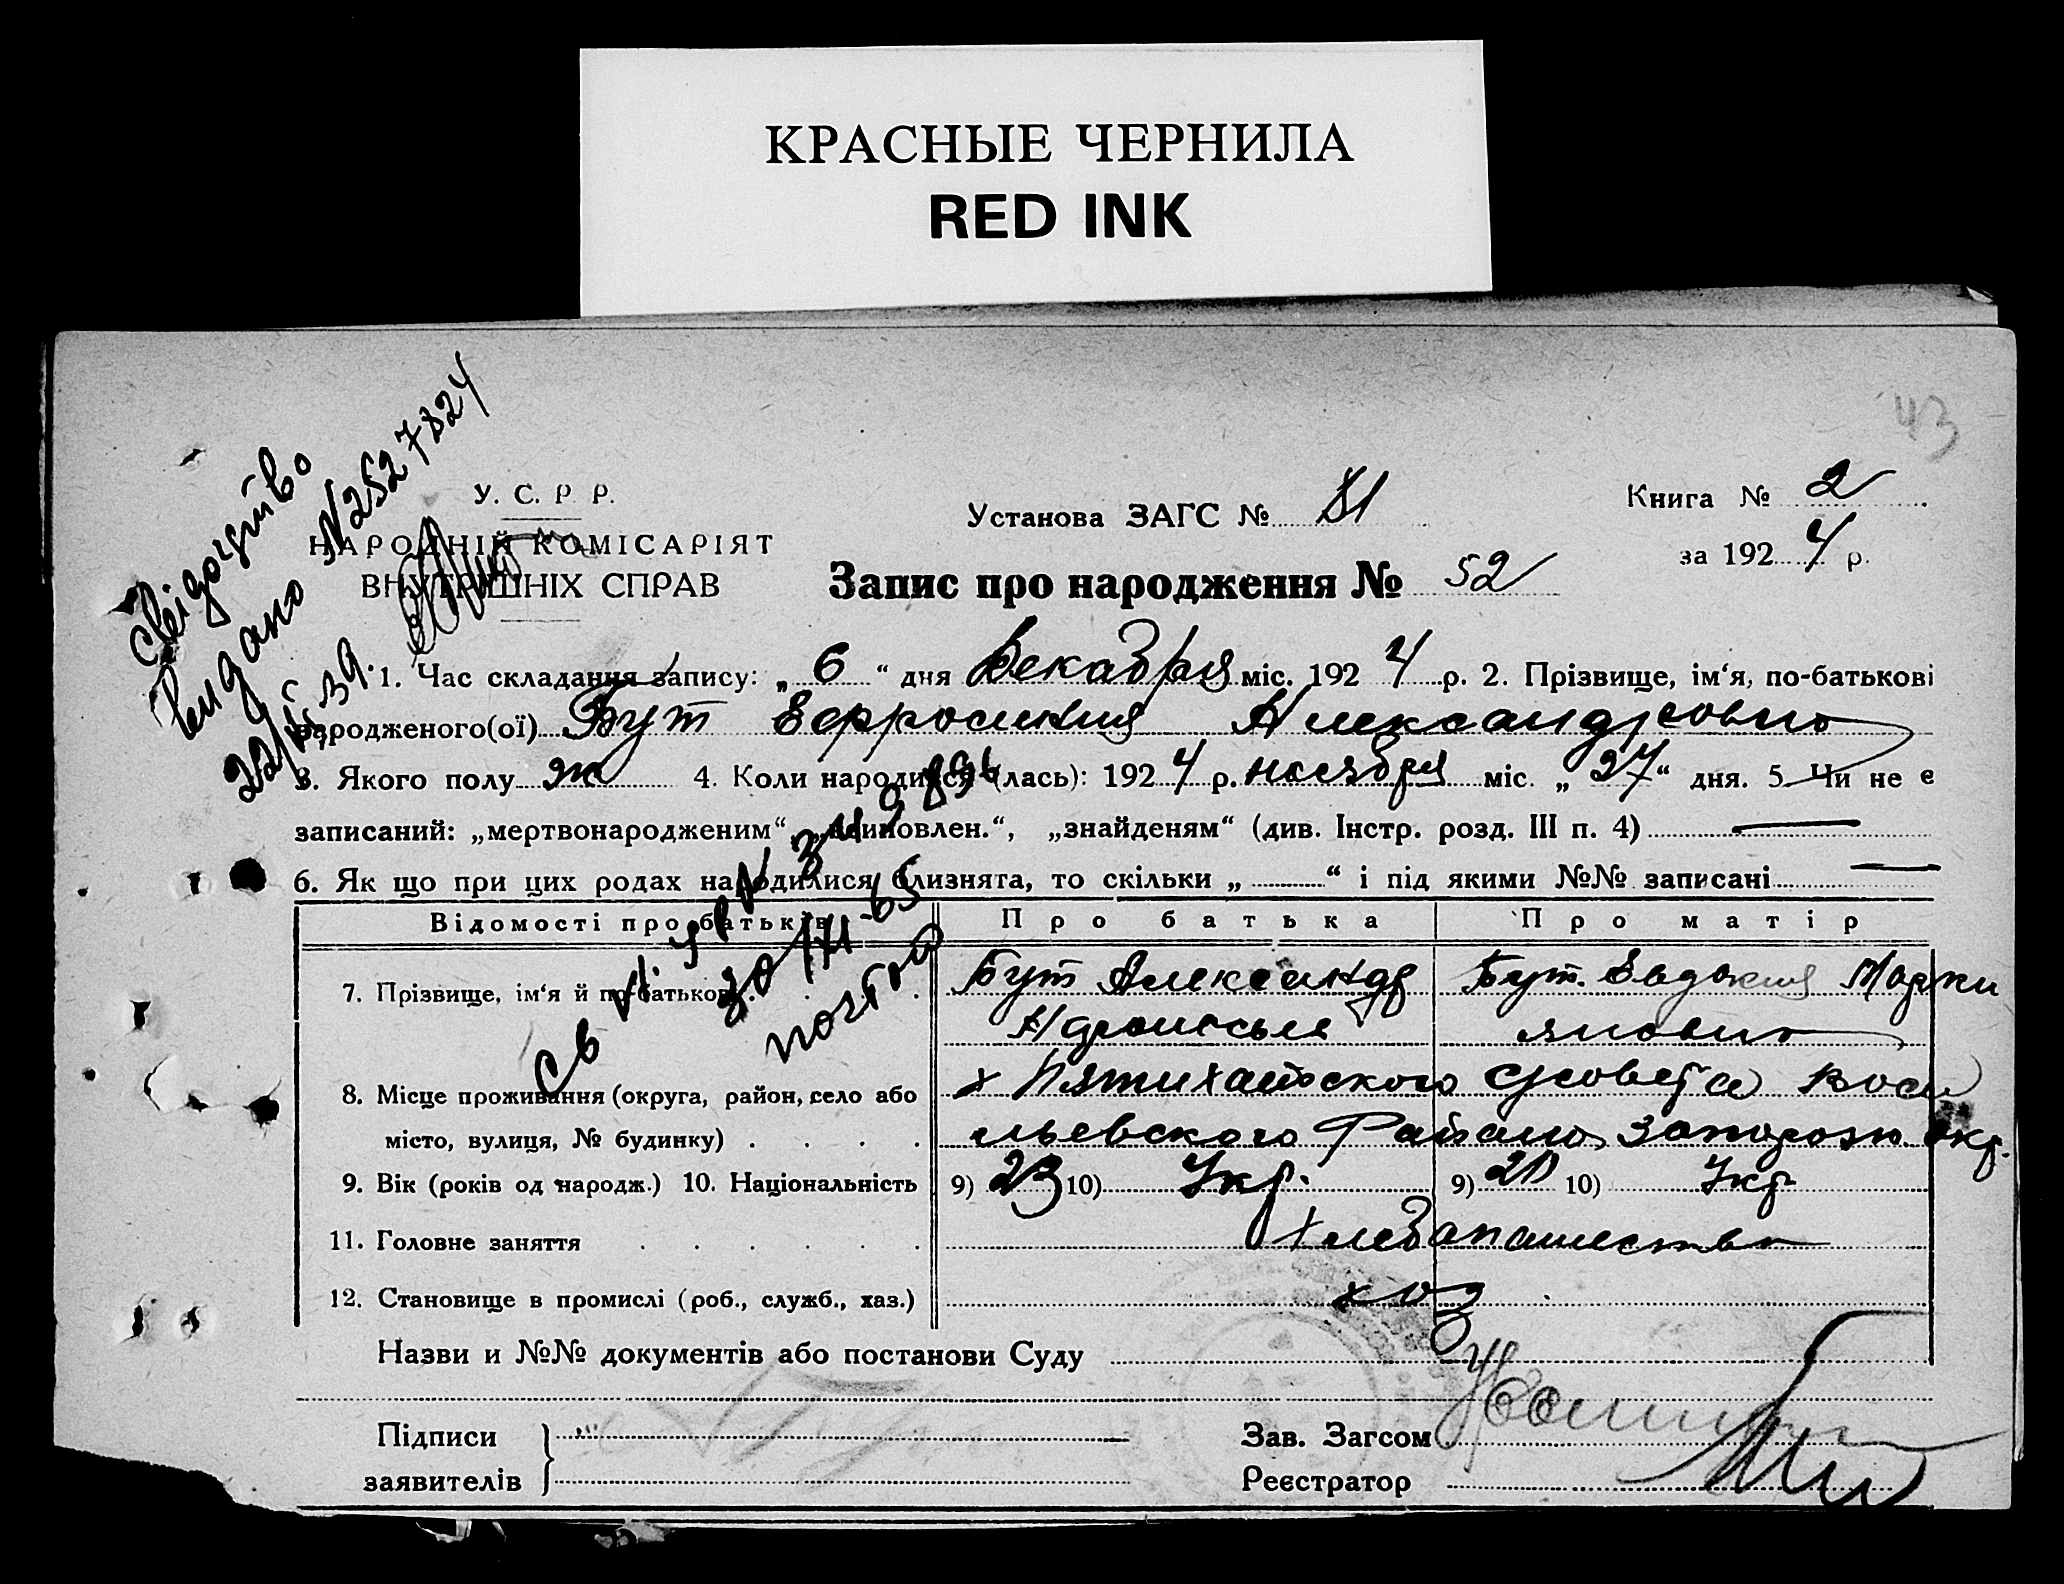 КРАСНЫЕ ЧЕРНИЛА
RED INK
43
Свідоцтво
видано N 2527824
У. С. Р. Р.
НАРОДНІЙ КОМІСАРІЯТ
ВНУТРІШНІХ СПРАВ
Установа ЗАГС №
Книга № 2
за 1924 р.
Запис про народження № 52
1. Час складання запису: „ 6 “ дня Декабря міс. 1924 р. 2. Прізвище, ім‘я, по-батькові
народженого(ої) Бут Ефросиния Александровно
3. Якого полу ж 4. Коли народився (лась): 1924 р. ноября міс. „ 27 “ дня. 5. Чи не є
записаний: „мертвонародженим“, „всиновлен.“, „знайденям“ (див. Інстр. розд. III п. 4) —
6. Як що при цих родах народилися близнята, то скільки „ “ і під якими №№ записані —
Відомості про батьків Про батька Про матір
7. Прізвище, ім‘я й по-батькові Бут Александр Бут Евдокия Марки
яновно
8. Місце проживання (округа, район, село або х Пятихатского Совета Васи
місто, вулиця, № будинку) льевского Района Запорож. окр.
9. Вік (років од народж.) 10. Національність 9) 23 10) Укр. 9) 20 10) Укр
11. Головне заняття Хлебопашество
12. Становище в промислі (роб., служб., хаз.) хоз
почтой
Назви и №№ документів або постанови Суду
Підписи
заявителів
Зав. Загсом
Реєстратор